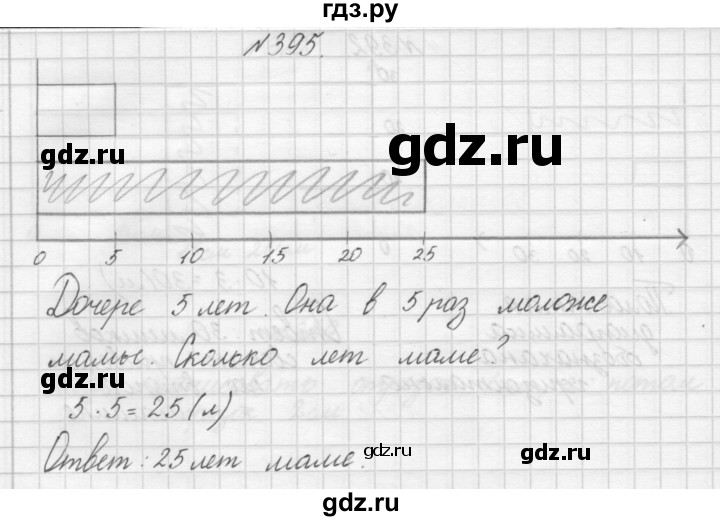 гдз.ру
№395.
gdz.ru
gdz.ru
gdz.ru
0 5 10 15 20 25
Дочере 5 лет. Она в 5 раз моложе
мамы. Сколько лет маме?
gdz.ru
gdz.ru
5·5=25(л)
Ответ: 25 лет маме.
gdz.ru
gdz.ru